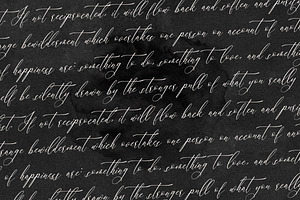 st. If not reciprocated, it will flow back and soften and purif
range bewilderment which overtakes one person on account of anot
of happiness are: something to do, something to love, and somethi
ill be silently drawn by the stronger pull of what you really
st. If not reciprocated, it will flow back and soften and purif
range bewilderment which overtakes one person on account of an
of happiness are: something to do, something to love, and som
ill be silently drawn by the stronger pull of what you reall